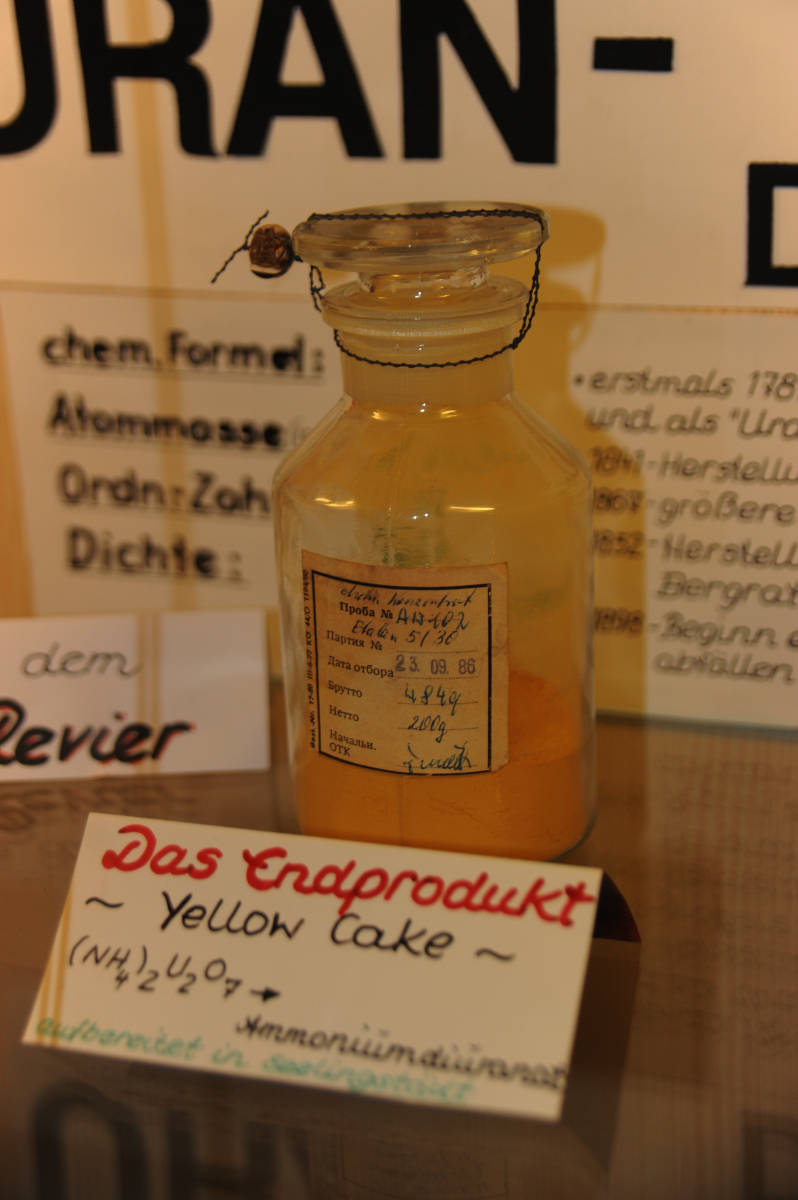 URAN-
chem. Formel:
Atommasse
Ordn.-Zah
Dichte:
• erstmals 178
und als "Ura
1841-Herstellu
1867-größere
1852-Herstell
Bergrat
1898-Beginn
abfällen
dem
Revier
Проба № 
Etalon 5/30
Партия №
Дата отбора 23.09.86
Брутто 484g
Нетто 200g
Начальн.
ОТК
Das Endprodukt
~ Yellow Cake ~
(NH4)2U2O7 →
Ammoniümdiüranat
aufbereitet in Seelingstädt